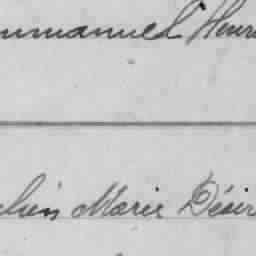 mmanuel Henri
lien Marie Désir